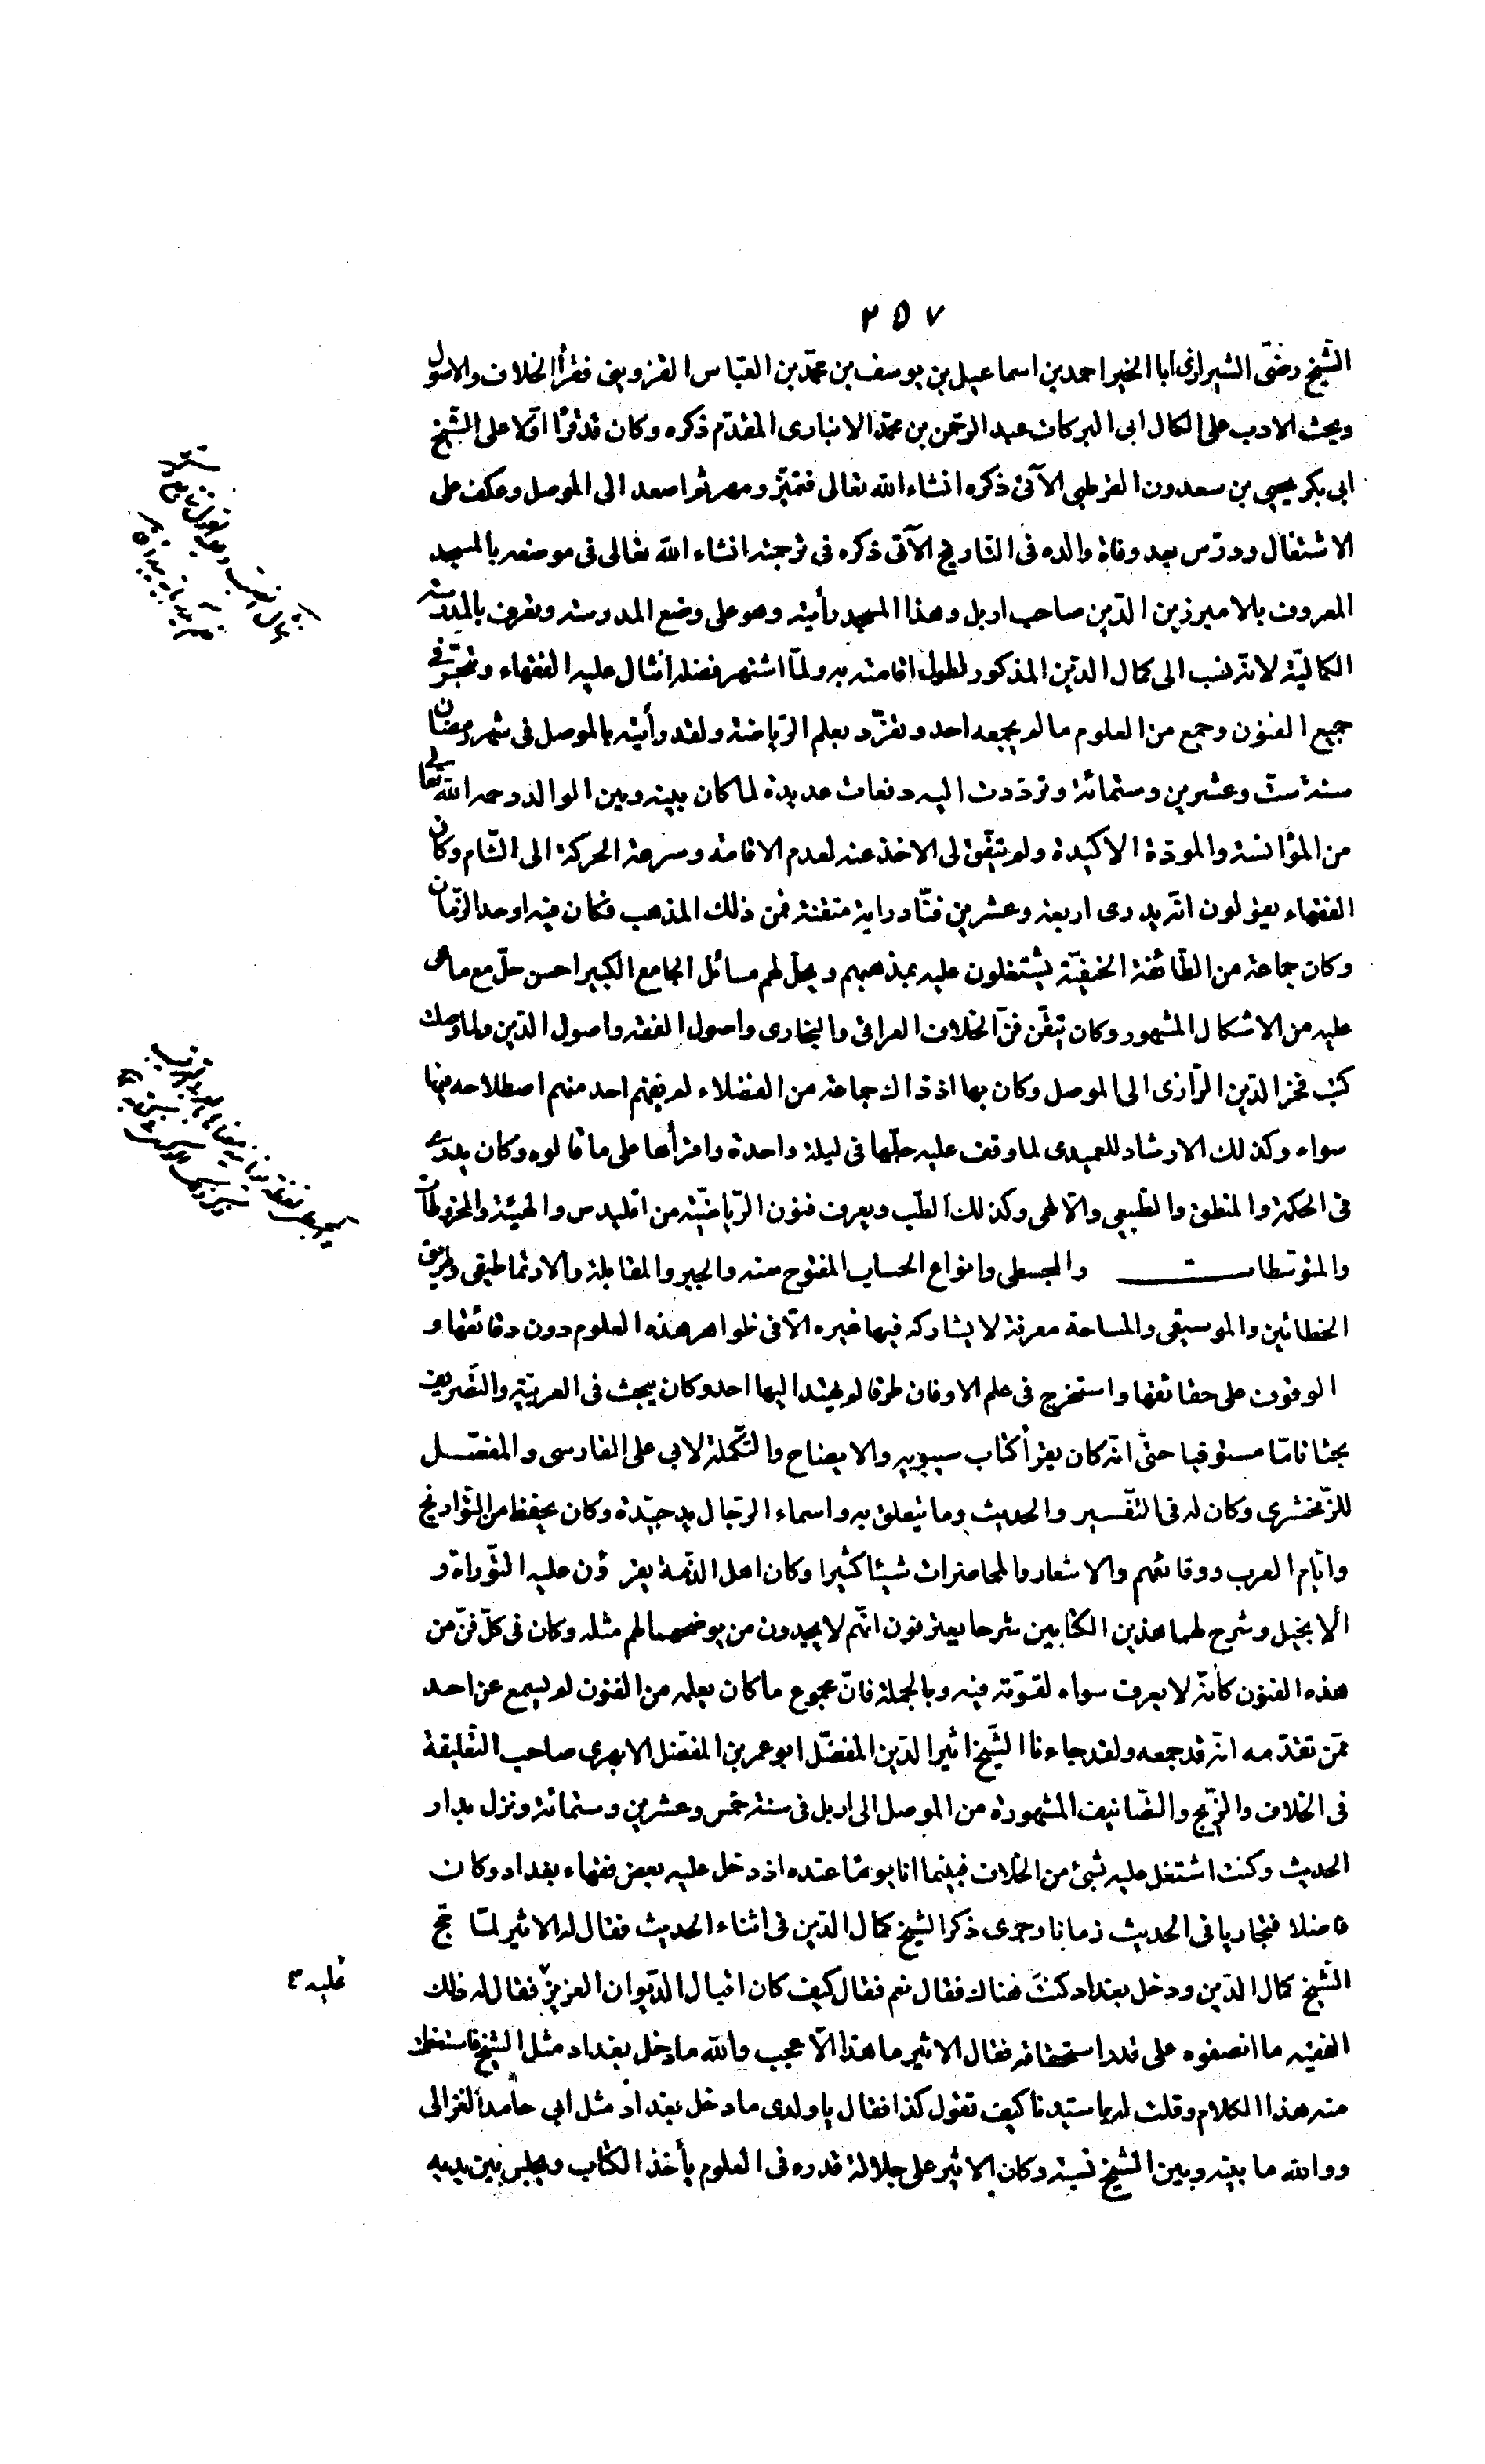 ٢٥٧
الشّيخ رضىّ الشيرازى ابا الخير احمد بن اسماعيل بن يوسف بن محمّد بن العبّاس القزوينى فقرأ الخلاف والاصول
وبحث الادب على الكمال ابى البركات عبد الرحمن بن محمّد الانبارى المقدّم ذكره وكان قد قرأ اوّلا على الشّيخ
ابى بكر يحيى بن سعدون القرطبى الآتى ذكره انشاء الله تعالى فتميّز ومهر ثم اصعد الى الموصل وعكف على
الاشتغال ودرّس بعد وفاة والده فى التاريخ الآتى ذكره فى ترجمته انشاء الله تعالى فى موضعه بالمسجد
المعروف بالامير زين الدّين صاحب اربل وهذا المسجد رأيته وهو على وضع المدرسة ويعرف بالمدرسة
الكماليّة لانّه نسب الى كمال الدّين المذكور لطول اقامته به ولمّا اشتهر فضله انثال عليه الفقهاء وتبحّر فى
جميع الفنون وجمع من العلوم ما لم يجمعه احد وتفرّد بعلم الرّياضة ولقد رأيته بالموصل فى شهر رمضان
سنة ستّ وعشرين وستمائة وتردّدت اليه دفعات عديدة لما كان بينه وبين الوالد رحمه الله تعالى
من المؤانسة والمودّة الاكيدة ولم يتّفق لى الاخذ عنه لعدم الاقامة وسرعة الحركة الى الشّام وكان
الفقهاء يقولون انّه يدرى اربعة وعشرين فنّا دراية متقنة فمن ذلك المذهب فكان فيه اوحد الزّمان
وكان جماعة من الطّائفة الحنفيّة يشتغلون عليه بمذهبهم ويحلّ لهم مسائل الجامع الكبير احسن حلّ مع ما هى
عليه من الاشكال المشهور وكان يتقن فنّ الخلاف العراقى والبخارى واصول الفقه واصول الدّين ولمّا وصلت
كتب فخر الدّين الرّازى الى الموصل وكان بها اذ ذاك جماعة من الفضلاء لم يفهم احد منهم اصطلاحه فيها
سواه وكذلك الارشاد للعميدى لما وقف عليه حلّها فى ليلة واحدة واقرأها على ما قالوه وكان يدرى
فى الحكمة والمنطق والطّبيعى والالهى وكذلك الطّب ويعرف فنون الرّياضيّة من اقليدس والهيئة والمخروطات
والمتوسّطات والمجسطى وانواع الحساب المفتوح منه والجبر والمقابلة والارثماطيقى وطريق
الخطائين والموسيقى والمساحة معرفة لا يشاركه فيها غيره الّا فى ظواهر هذه العلوم دون دقائقها و
الوقوف على حقائقها واستخرج فى علم الاوفاق طرقا لم يهتد اليها احد وكان يبحث فى العربيّة والتّصريف
بحثا تامّا مستوفيا حتّى انّه كان يقرأ كتاب سيبويه والايضاح والتّكملة لابى على الفارسى والمفصّل
للزّمخشرى وكان له فى التّفسير والحديث وما يتعلّق به واسماء الرّجال يد جيّدة وكان يحفظ من التّواريخ
وايّام العرب ووقائعهم والاشعار والمحاضرات شيئا كثيرا وكان اهل الذّمة يقرؤن عليه التّوراة و
الانجيل وشرح لهما هذين الكتابين شرحا يعترفون انّهم لا يجدون من يوضحهما لهم مثله وكان فى كلّ فنّ من
هذه الفنون كأنّه لا يعرف سواه لقوّته فيه وبالجملة فانّ مجموع ما كان يعلمه من الفنون لم يسمع عن احد
ممّن تقدّمه انّه قد جمعه ولقد جاءنا الشّيخ اثير الدّين المفضّل ابو عمر بن المفضّل الابهرى صاحب التّعليقة
فى الخلاف والزّيج والتّصانيف المشهورة من الموصل الى اربل فى سنة خمس وعشرين وستمائة ونزل بدار
الحديث وكنت اشتغل عليه بشىء من الخلاف فبينما انا يوما عنده اذ دخل عليه بعض فقهاء بغداد وكان
فاضلا فتجاريا فى الحديث زمانا وجرى ذكر الشيخ كمال الدّين فى اثناء الحديث فقال له الاثير لمّا حجّ
الشّيخ كمال الدّين ودخل بغداد كنت هناك فقال نعم فقال كيف كان اقبال الدّيوان العزيز فقال له ذلك
عليه
الفقيه ما انصفوه على قدر استحقاقه فقال الاثير ما هذا الّا عجب والله ما دخل بغداد مثل الشّيخ فاستعظمت
منه هذا الكلام وقلت له يا سيّدنا كيف تقول كذا فقال يا ولدى ما دخل بغداد مثل ابى حامد الغزالى
ووالله ما بينه وبين الشّيخ نسبة وكان الاثير على جلالة قدره فى العلوم يأخذ الكتاب ويجلس بين يديه